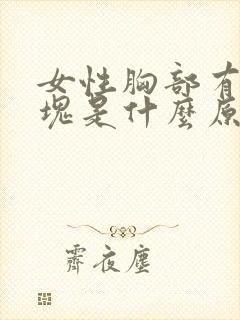 女性胸部有
塊是什麼原
霽夜塵